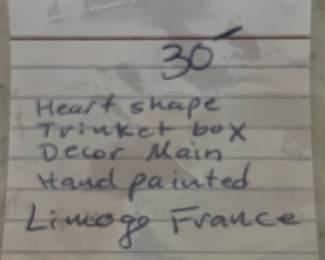 30
Heart shape
Trinket box
Decor Main
Hand painted
Limoge France